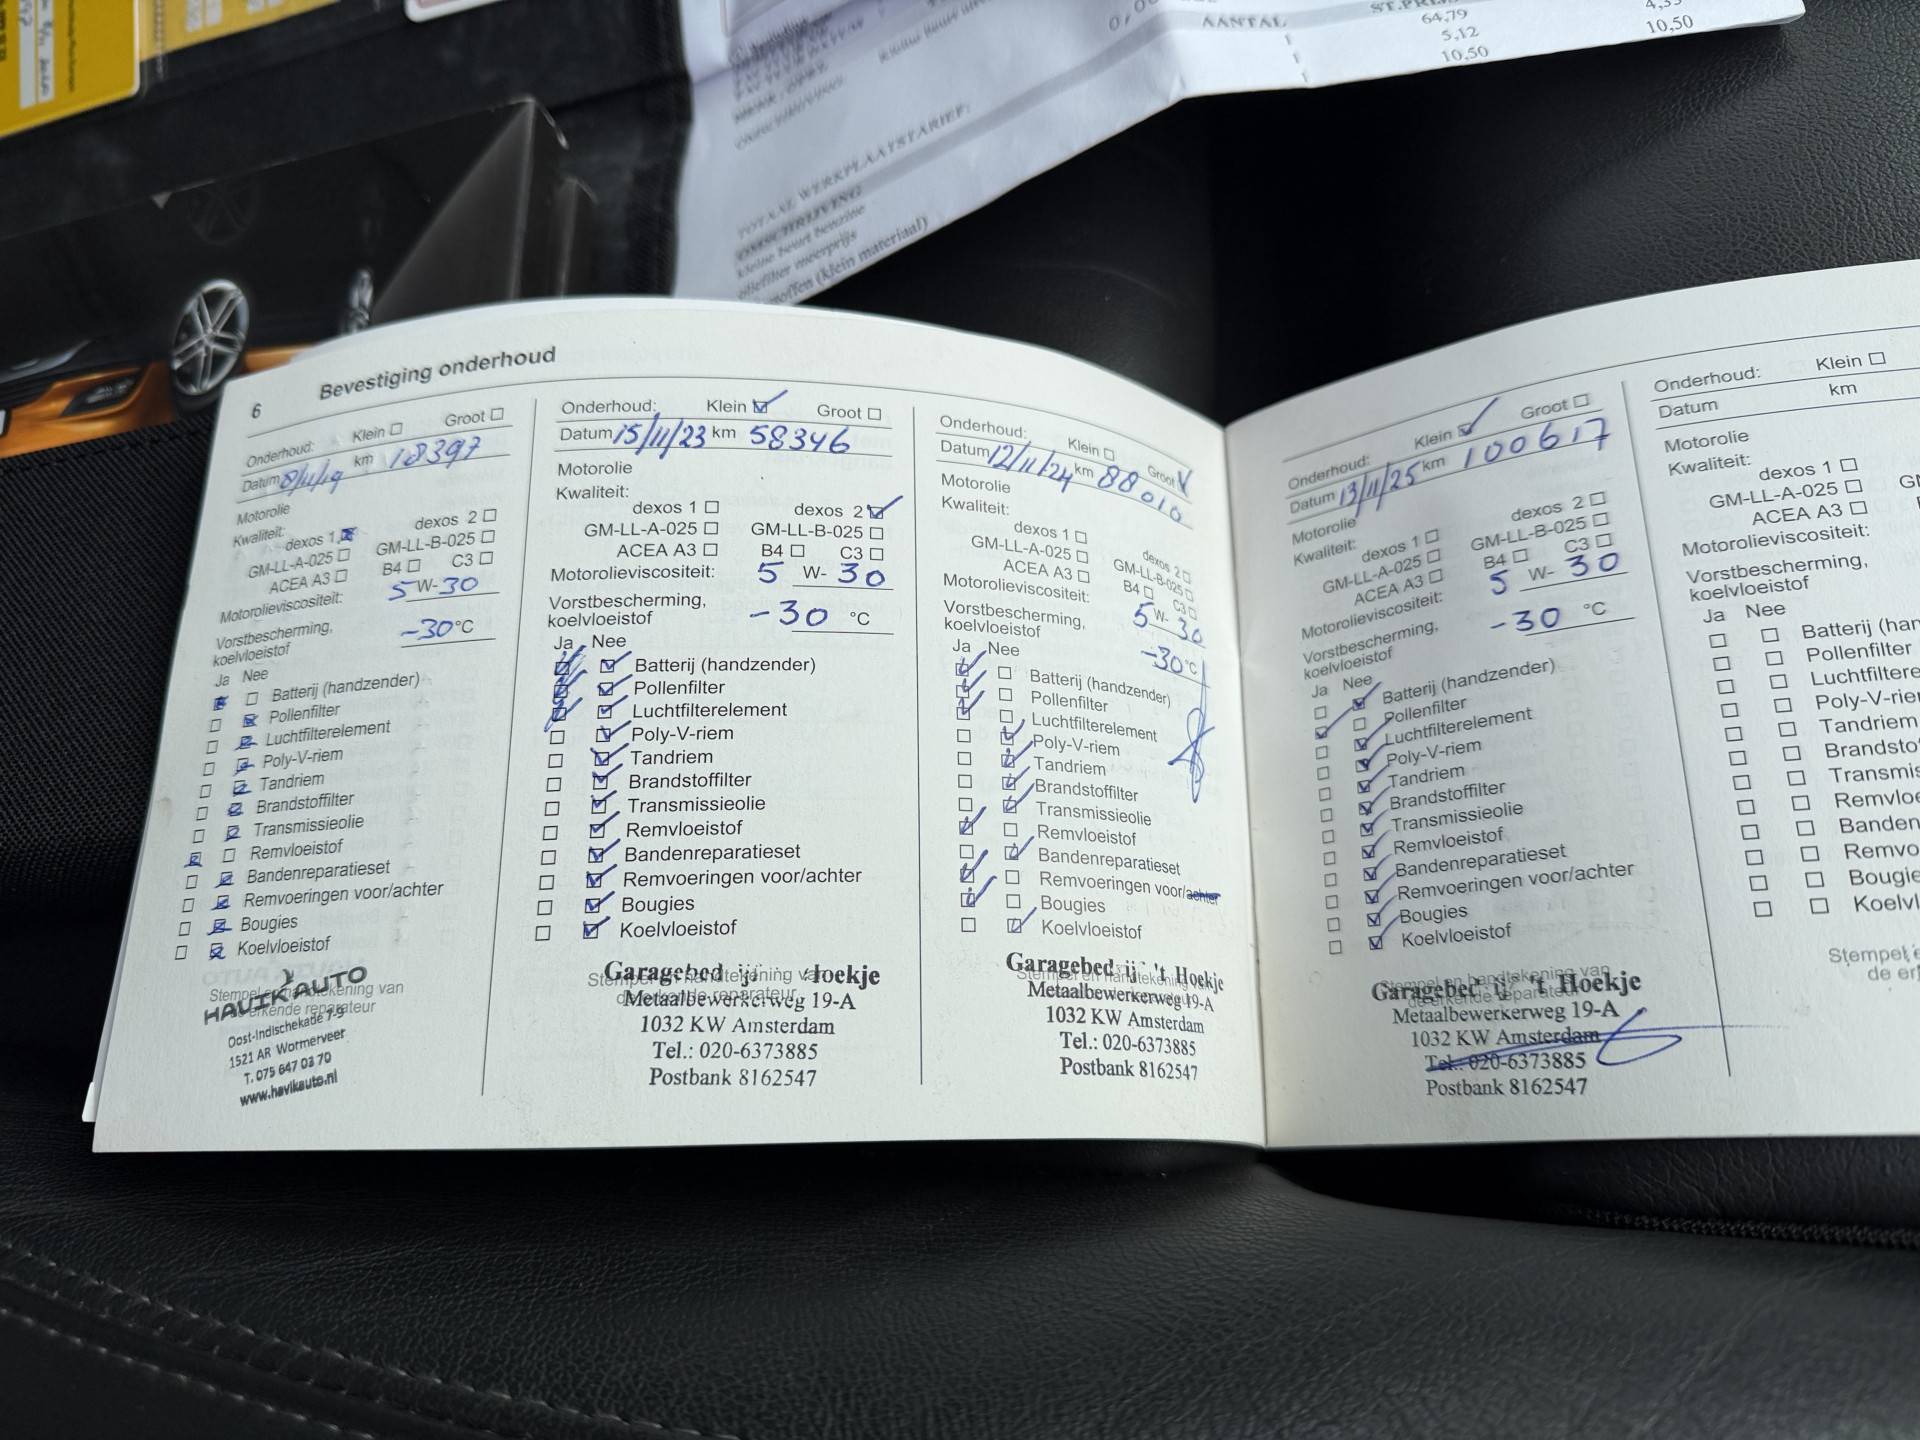 AANTAL
64,79
5,12
10,50
10,50
TOTAAL WERKPLAATSTARIEF:
OMSCHRIJVING
kleine beurt benzine
oliefilter meerprijs
(klein materiaal)
6 Bevestiging onderhoud
Onderhoud: Klein Groot
Datum 8/11/19 km 18397
Motorolie
Kwaliteit:
dexos 1 dexos 2
GM-LL-A-025 GM-LL-B-025
ACEA A3 B4 C3
Motorolieviscositeit: 5 W- 30
Vorstbescherming,
koelvloeistof -30 °C
Ja Nee
Batterij (handzender)
Pollenfilter
Luchtfilterelement
Poly-V-riem
Tandriem
Brandstoffilter
Transmissieolie
Remvloeistof
Bandenreparatieset
Remvoeringen voor/achter
Bougies
Koelvloeistof
Stempel en handtekening van
de erkende reparateur
HAVIK AUTO
Oost-Indischekade 7-9
1521 AR Wormerveer
T. 075 647 03 70
www.havikauto.nl
Onderhoud: Klein Groot
Datum 15/11/23 km 58346
Motorolie
Kwaliteit:
dexos 1 dexos 2
GM-LL-A-025 GM-LL-B-025
ACEA A3 B4 C3
Motorolieviscositeit: 5 W- 30
Vorstbescherming,
koelvloeistof -30 °C
Ja Nee
Batterij (handzender)
Pollenfilter
Luchtfilterelement
Poly-V-riem
Tandriem
Brandstoffilter
Transmissieolie
Remvloeistof
Bandenreparatieset
Remvoeringen voor/achter
Bougies
Koelvloeistof
Stempel en handtekening van
de erkende reparateur
Garagebedrijf 't Hoekje
Metaalbewerkerweg 19-A
1032 KW Amsterdam
Tel.: 020-6373885
Postbank 8162547
Onderhoud: Klein Groot
Datum 12/11/24 km 88010
Motorolie
Kwaliteit:
dexos 1 dexos 2
GM-LL-A-025 GM-LL-B-025
ACEA A3 B4 C3
Motorolieviscositeit: 5 W- 30
Vorstbescherming,
koelvloeistof -30 °C
Ja Nee
Batterij (handzender)
Pollenfilter
Luchtfilterelement
Poly-V-riem
Tandriem
Brandstoffilter
Transmissieolie
Remvloeistof
Bandenreparatieset
Remvoeringen voor/achter
Bougies
Koelvloeistof
Stempel en handtekening van
Garagebedrijf 't Hoekje
Metaalbewerkerweg 19-A
1032 KW Amsterdam
Tel.: 020-6373885
Postbank 8162547
Onderhoud: Klein Groot
Datum 13/11/25 km 100617
Motorolie
Kwaliteit:
dexos 1 dexos 2
GM-LL-A-025 GM-LL-B-025
ACEA A3 B4 C3
Motorolieviscositeit: 5 W- 30
Vorstbescherming,
koelvloeistof -30 °C
Ja Nee
Batterij (handzender)
Pollenfilter
Luchtfilterelement
Poly-V-riem
Tandriem
Brandstoffilter
Transmissieolie
Remvloeistof
Bandenreparatieset
Remvoeringen voor/achter
Bougies
Koelvloeistof
Stempel en handtekening van
de erkende reparateur
Garagebedrijf 't Hoekje
Metaalbewerkerweg 19-A
1032 KW Amsterdam
Tel.: 020-6373885
Postbank 8162547
Onderhoud: Klein
Datum km
Motorolie
Kwaliteit:
dexos 1
GM-LL-A-025
ACEA A3
Motorolieviscositeit:
Vorstbescherming,
koelvloeistof
Ja Nee
Batterij (han
Pollenfilter
Luchtfiltere
Poly-V-rie
Tandriem
Brandsto
Transmis
Remvloe
Banden
Remvo
Bougie
Koelvl
Stempel e
de er